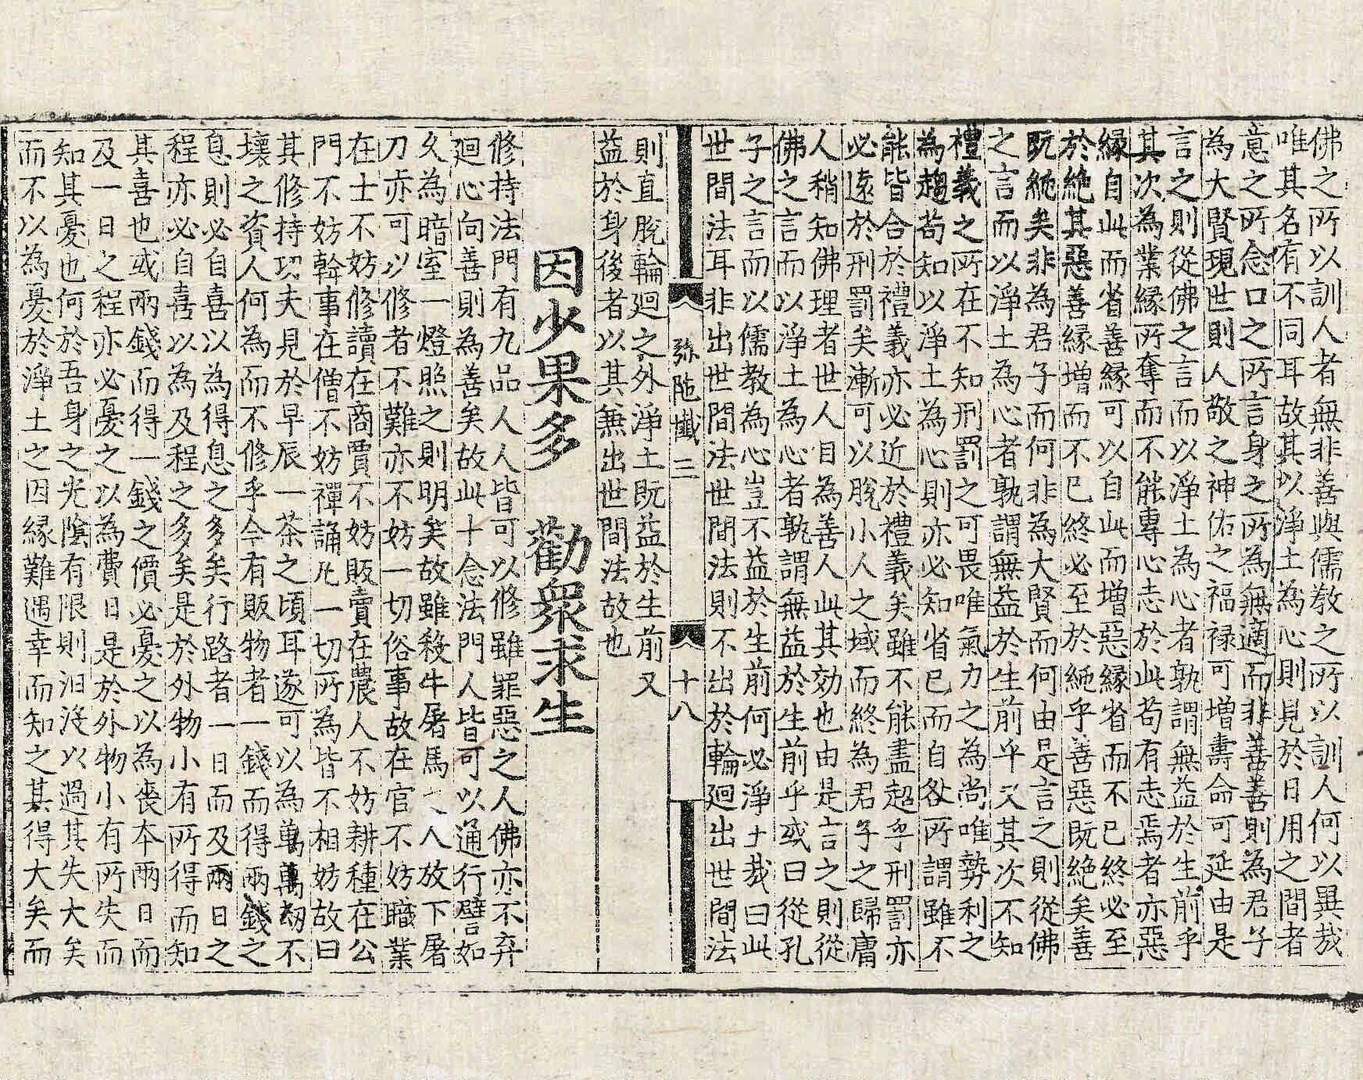 佛之所以訓人者無非善與儒教之所以訓人何以異哉
唯其名有不同耳故其以淨土為心則見於日用之間者
意之所念口之所言身之所為無適而非善善則為君子
為大賢現世則人敬之神佑之福祿可增壽命可延由是
言之則從佛之言而以淨土為心者孰謂無益於生前乎
其次為業緣所奪而不能專心志於此苟有志焉者亦惡
緣自此而省善緣可以自此而增惡緣省而不已終必至
於絶其惡善緣增而不已終必至於絶乎善惡既絶矣善
既純矣非為君子而何非為大賢而何由是言之則從佛
之言而以淨土為心者孰謂無益於生前乎又其次不知
禮義之所在不知刑罰之可畏唯氣力之為尚唯勢利之
為趨苟知以淨土為心則亦必知省己而自咎所謂雖不
能皆合於禮義亦必近於禮義矣雖不能盡超乎刑罰亦
必遠於刑罰矣漸可以脫小人之域而終為君子之歸庸
人稍知佛理者世人目為善人此其効也由是言之則從
佛之言而以淨土為心者孰謂無益於生前乎或曰從孔
子之言而以儒教為心豈不益於生前何必淨土哉曰此
世間法耳非出世間法世間法則不出於輪廻出世間法
弥陁懺三 十八
則直脫輪廻之外淨土既益於生前又
益於身後者以其無出世間法故也
因少果多 勸衆求生
修持法門有九品人人皆可以修雖罪惡之人佛亦不弃
廻心向善則為善矣故此十念法門人皆可以通行譬如
久為暗室一燈照之則明矣故雖殺牛屠馬人放下屠
刀亦可以修者不難亦不妨一切俗事故在官不妨職業
在士不妨修讀在商賈不妨販賣在農人不妨耕種在公
門不妨幹事在僧不妨禪誦凡一切所為皆不相妨故曰
其修持功夫見於早辰一茶之頃耳遂可以為萬萬劫不
壞之資人何為而不修乎今有販物者一錢而得兩錢之
息則必自喜以為得息之多矣行路者一日而及兩日之
程亦必自喜以為及程之多矣是於外物小有所得而知
其喜也或兩錢而得一錢之價必憂之以為喪本兩日而
及一日之程亦必憂之以為費日是於外物小有所失而
知其憂也何於吾身之光陰有限則汩沒以過其失大矣
而不以為憂於淨土之因緣難遇幸而知之其得大矣而